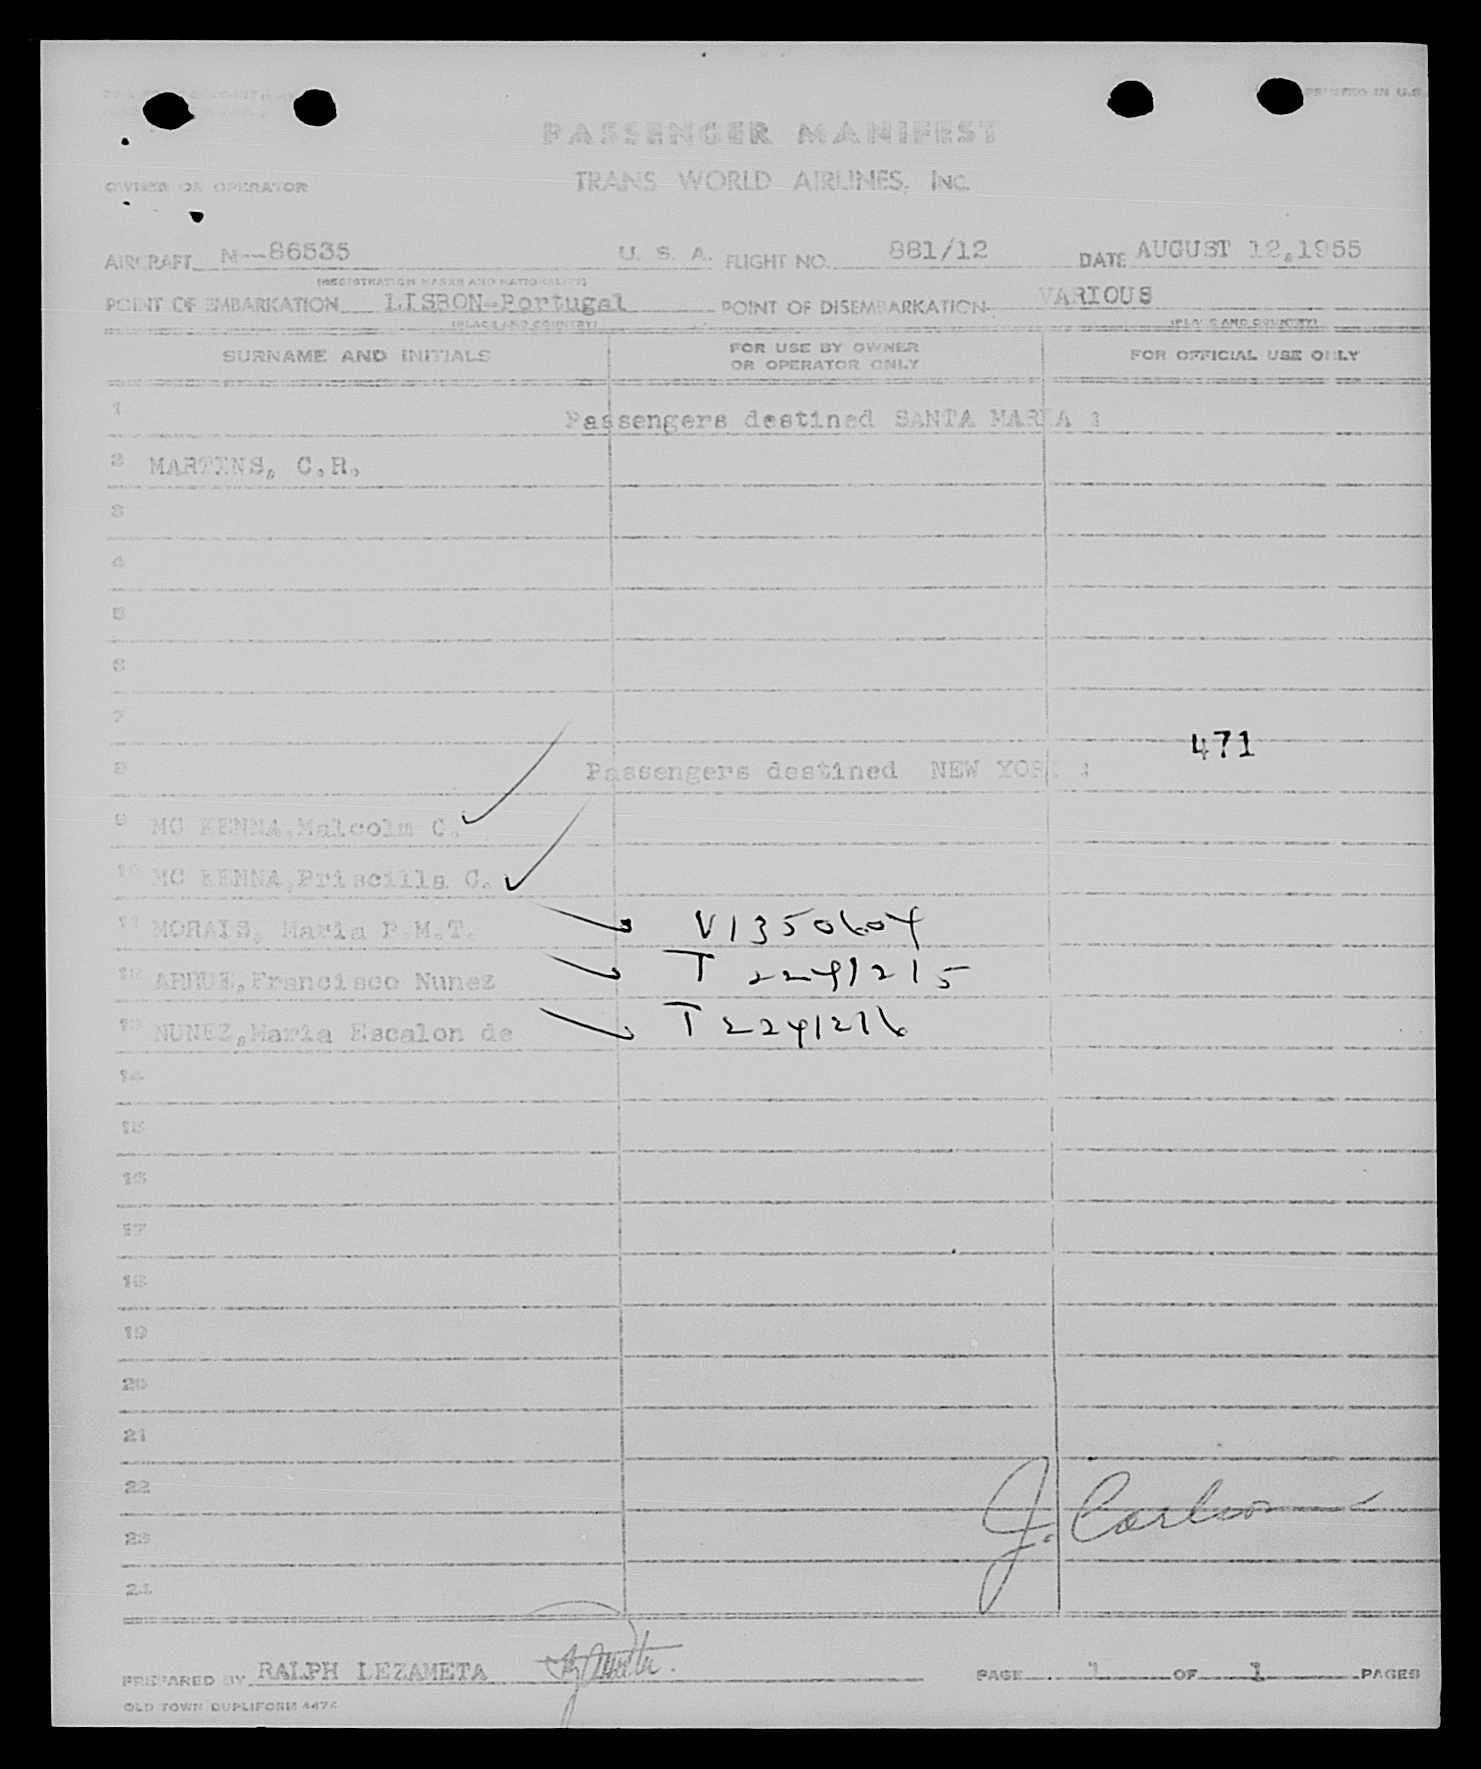 PRINTED IN U.S.
PASSENGER MANIFEST
OWNER OR OPERATOR TRANS WORLD AIRLINES, INC.
AIRCRAFT N--86535 U. S. A. FLIGHT NO. 881/12 DATE AUGUST 12,1955
(REGISTRATION MARKS AND NATIONALITY)
POINT OF EMBARKATION LISBON-Portugal POINT OF DISEMBARKATION VARIOUS
(PLACE AND COUNTRY) (PLACE AND COUNTRY)
SURNAME AND INITIALS FOR USE BY OWNER OR OPERATOR ONLY FOR OFFICIAL USE ONLY
1 Passengers destined SANTA MARIA :
2 MARTINS, C.R.
3
4
5
6
7
471
8 Passengers destined NEW YORK :
9 MC KENNA,Malcolm C.
10 MC KENNA,Priscilla C.
11 MORAIS, Maria P.M.T. V1350604
12 Francisco Nunez T 2241215
13 NUNEZ,Maria Escalon de T 2241216
14
15
16
17
18
19
20
21
22
23 J. Carlson
24
PREPARED BY RALPH LEZAMETA PAGE 1 OF 1 PAGES
OLD TOWN DUPLIFORM